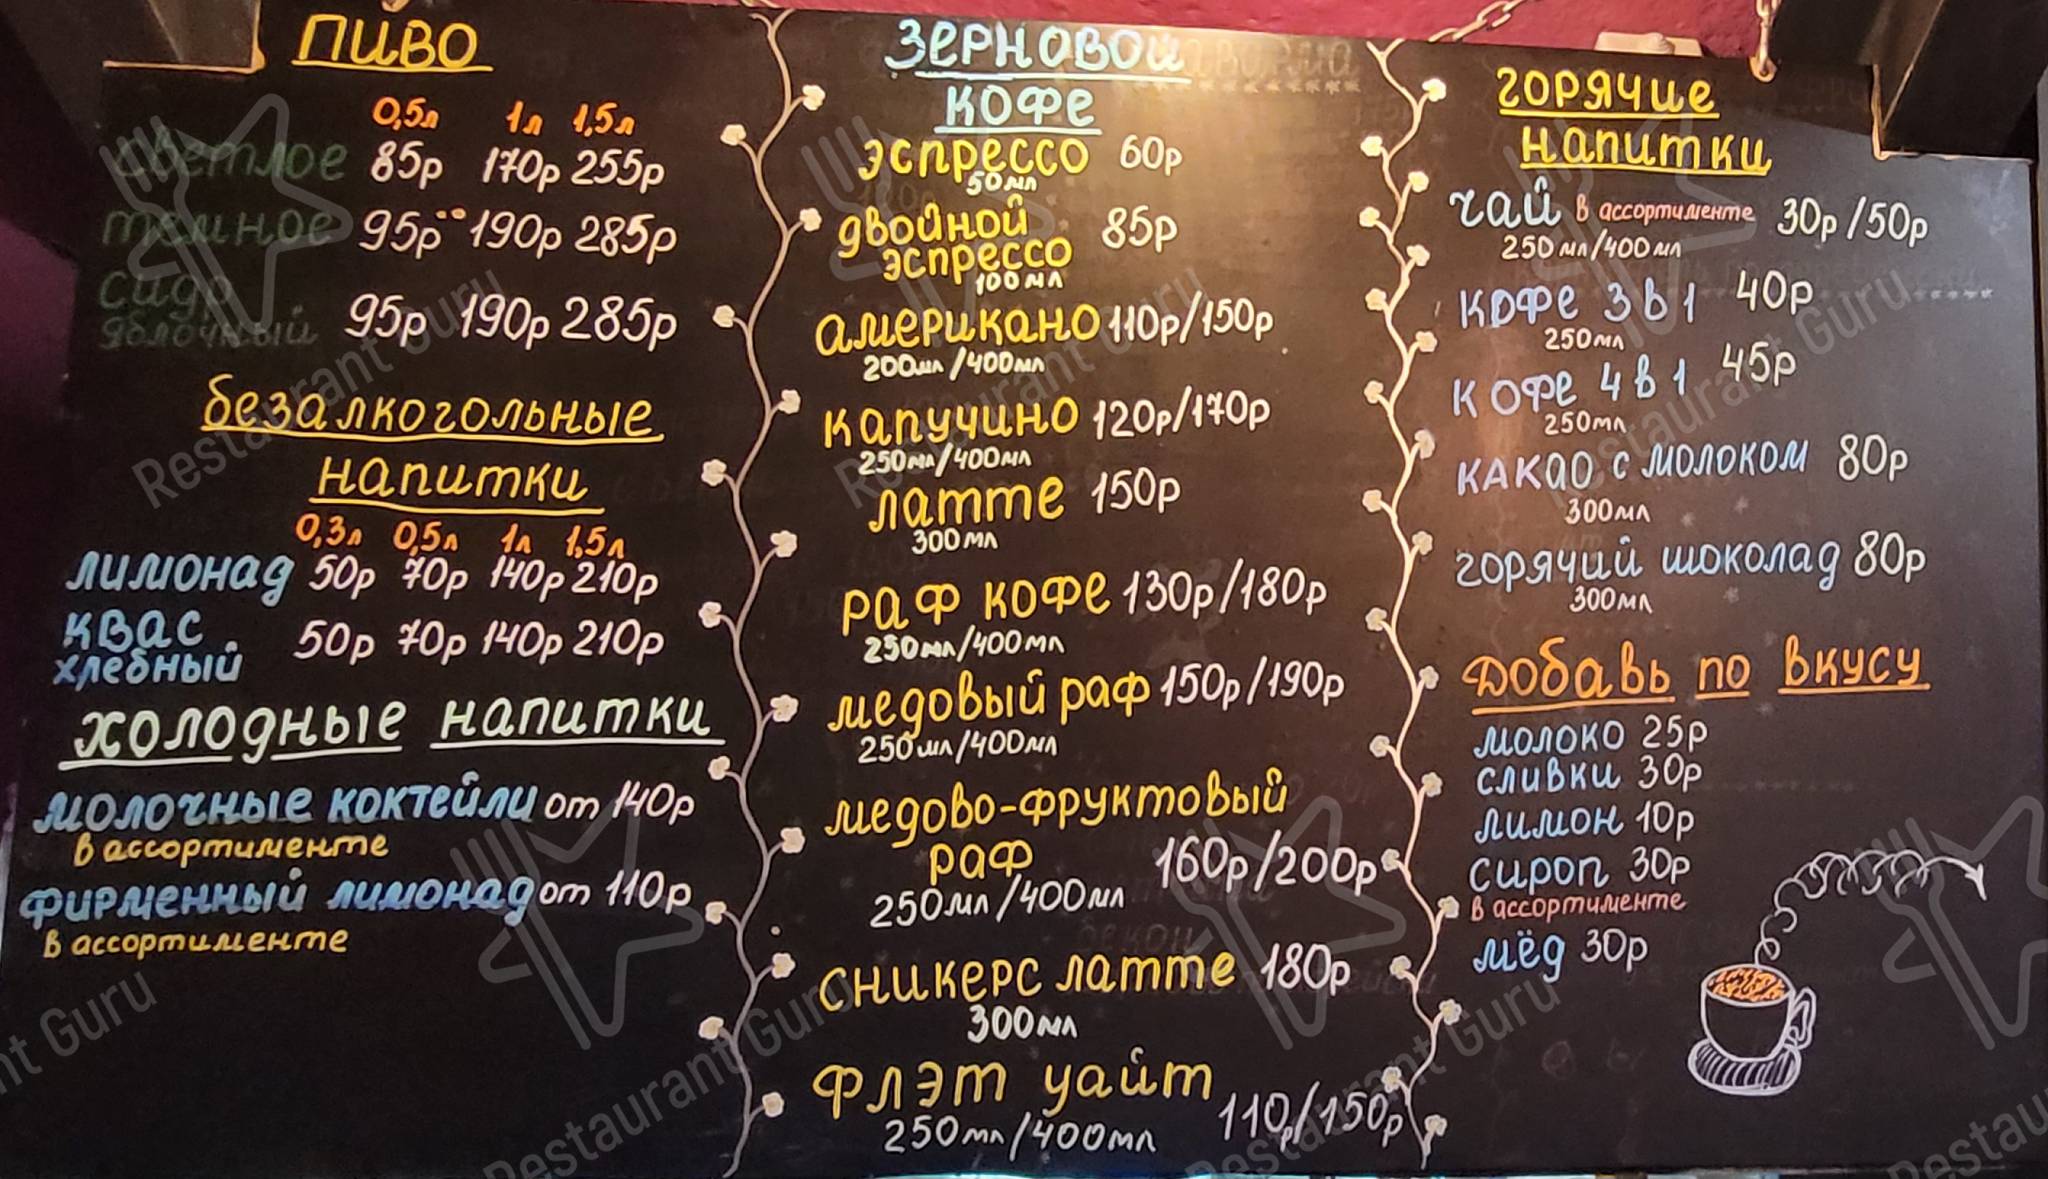 ПИВО
0,5л 1л 1,5л
светлое 85р 170р 255р
темное 95р 190р 285р
сидр
яблочный 95р 190р 285р
безалкогольные
напитки
0,3л 0,5л 1л 1,5л
лимонад 50р 70р 140р 210р
квас
хлебный 50р 70р 140р 210р
холодные напитки
молочные коктейли от 140р
в ассортименте
фирменный лимонад от 110р
в ассортименте
зерновой
кофе
эспрессо 60р
50мл
двойной 85р
эспрессо
100мл
американо 110р/150р
200мл/400мл
капучино 120р/170р
250мл/400мл
латте 150р
300мл
раф кофе 130р/180р
250мл/400мл
медовый раф 150р/190р
250мл/400мл
медово-фруктовый
раф 160р/200р
250мл/400мл
сникерс латте 180р
300мл
флэт уайт 110р/150р
250мл/400мл
горячие
напитки
чай в ассортименте 30р/50р
250мл/400мл
кофе 3в1 40р
250мл
кофе 4в1 45р
250мл
какао с молоком 80р
300мл
горячий шоколад 80р
300мл
Добавь по вкусу
молоко 25р
сливки 30р
лимон 10р
сироп 30р
в ассортименте
мёд 30р
Restaurant Guru
Restaurant Guru
Restaurant Guru
Restaurant Guru
Restaurant Guru